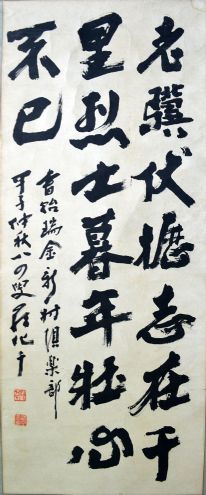 老驥伏櫪志在千
里烈士暮年壯心
不已
書貽瑞金新村俱樂部
甲子仲秋八四叟